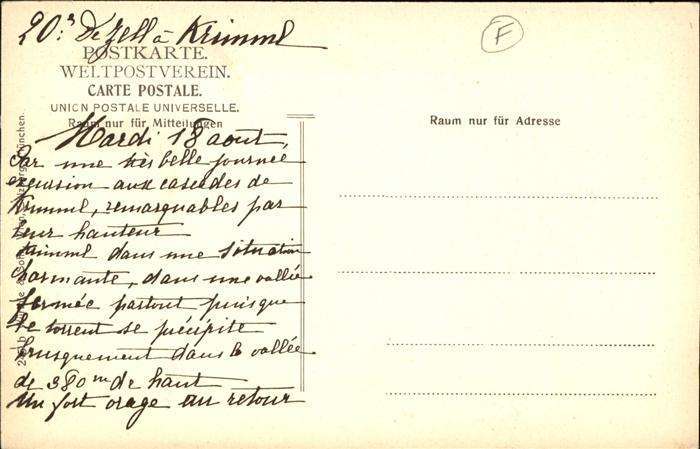 20:3 De Zell à Krimml
F
POSTKARTE.
WELTPOSTVEREIN.
CARTE POSTALE.
UNION POSTALE UNIVERSELLE.
Raum nur für Mitteilungen
Raum nur für Adresse
Mardi 18 aout,
Par une très belle journée
excursion aux cascades de
Krimml, remarquables par
leur hauteur
Krimml dans une situation
charmante, dans une vallée
fermée partout puisque
le torrent se précipite
brusquement dans la vallée
de 380 m de haut
Un fort orage au retour